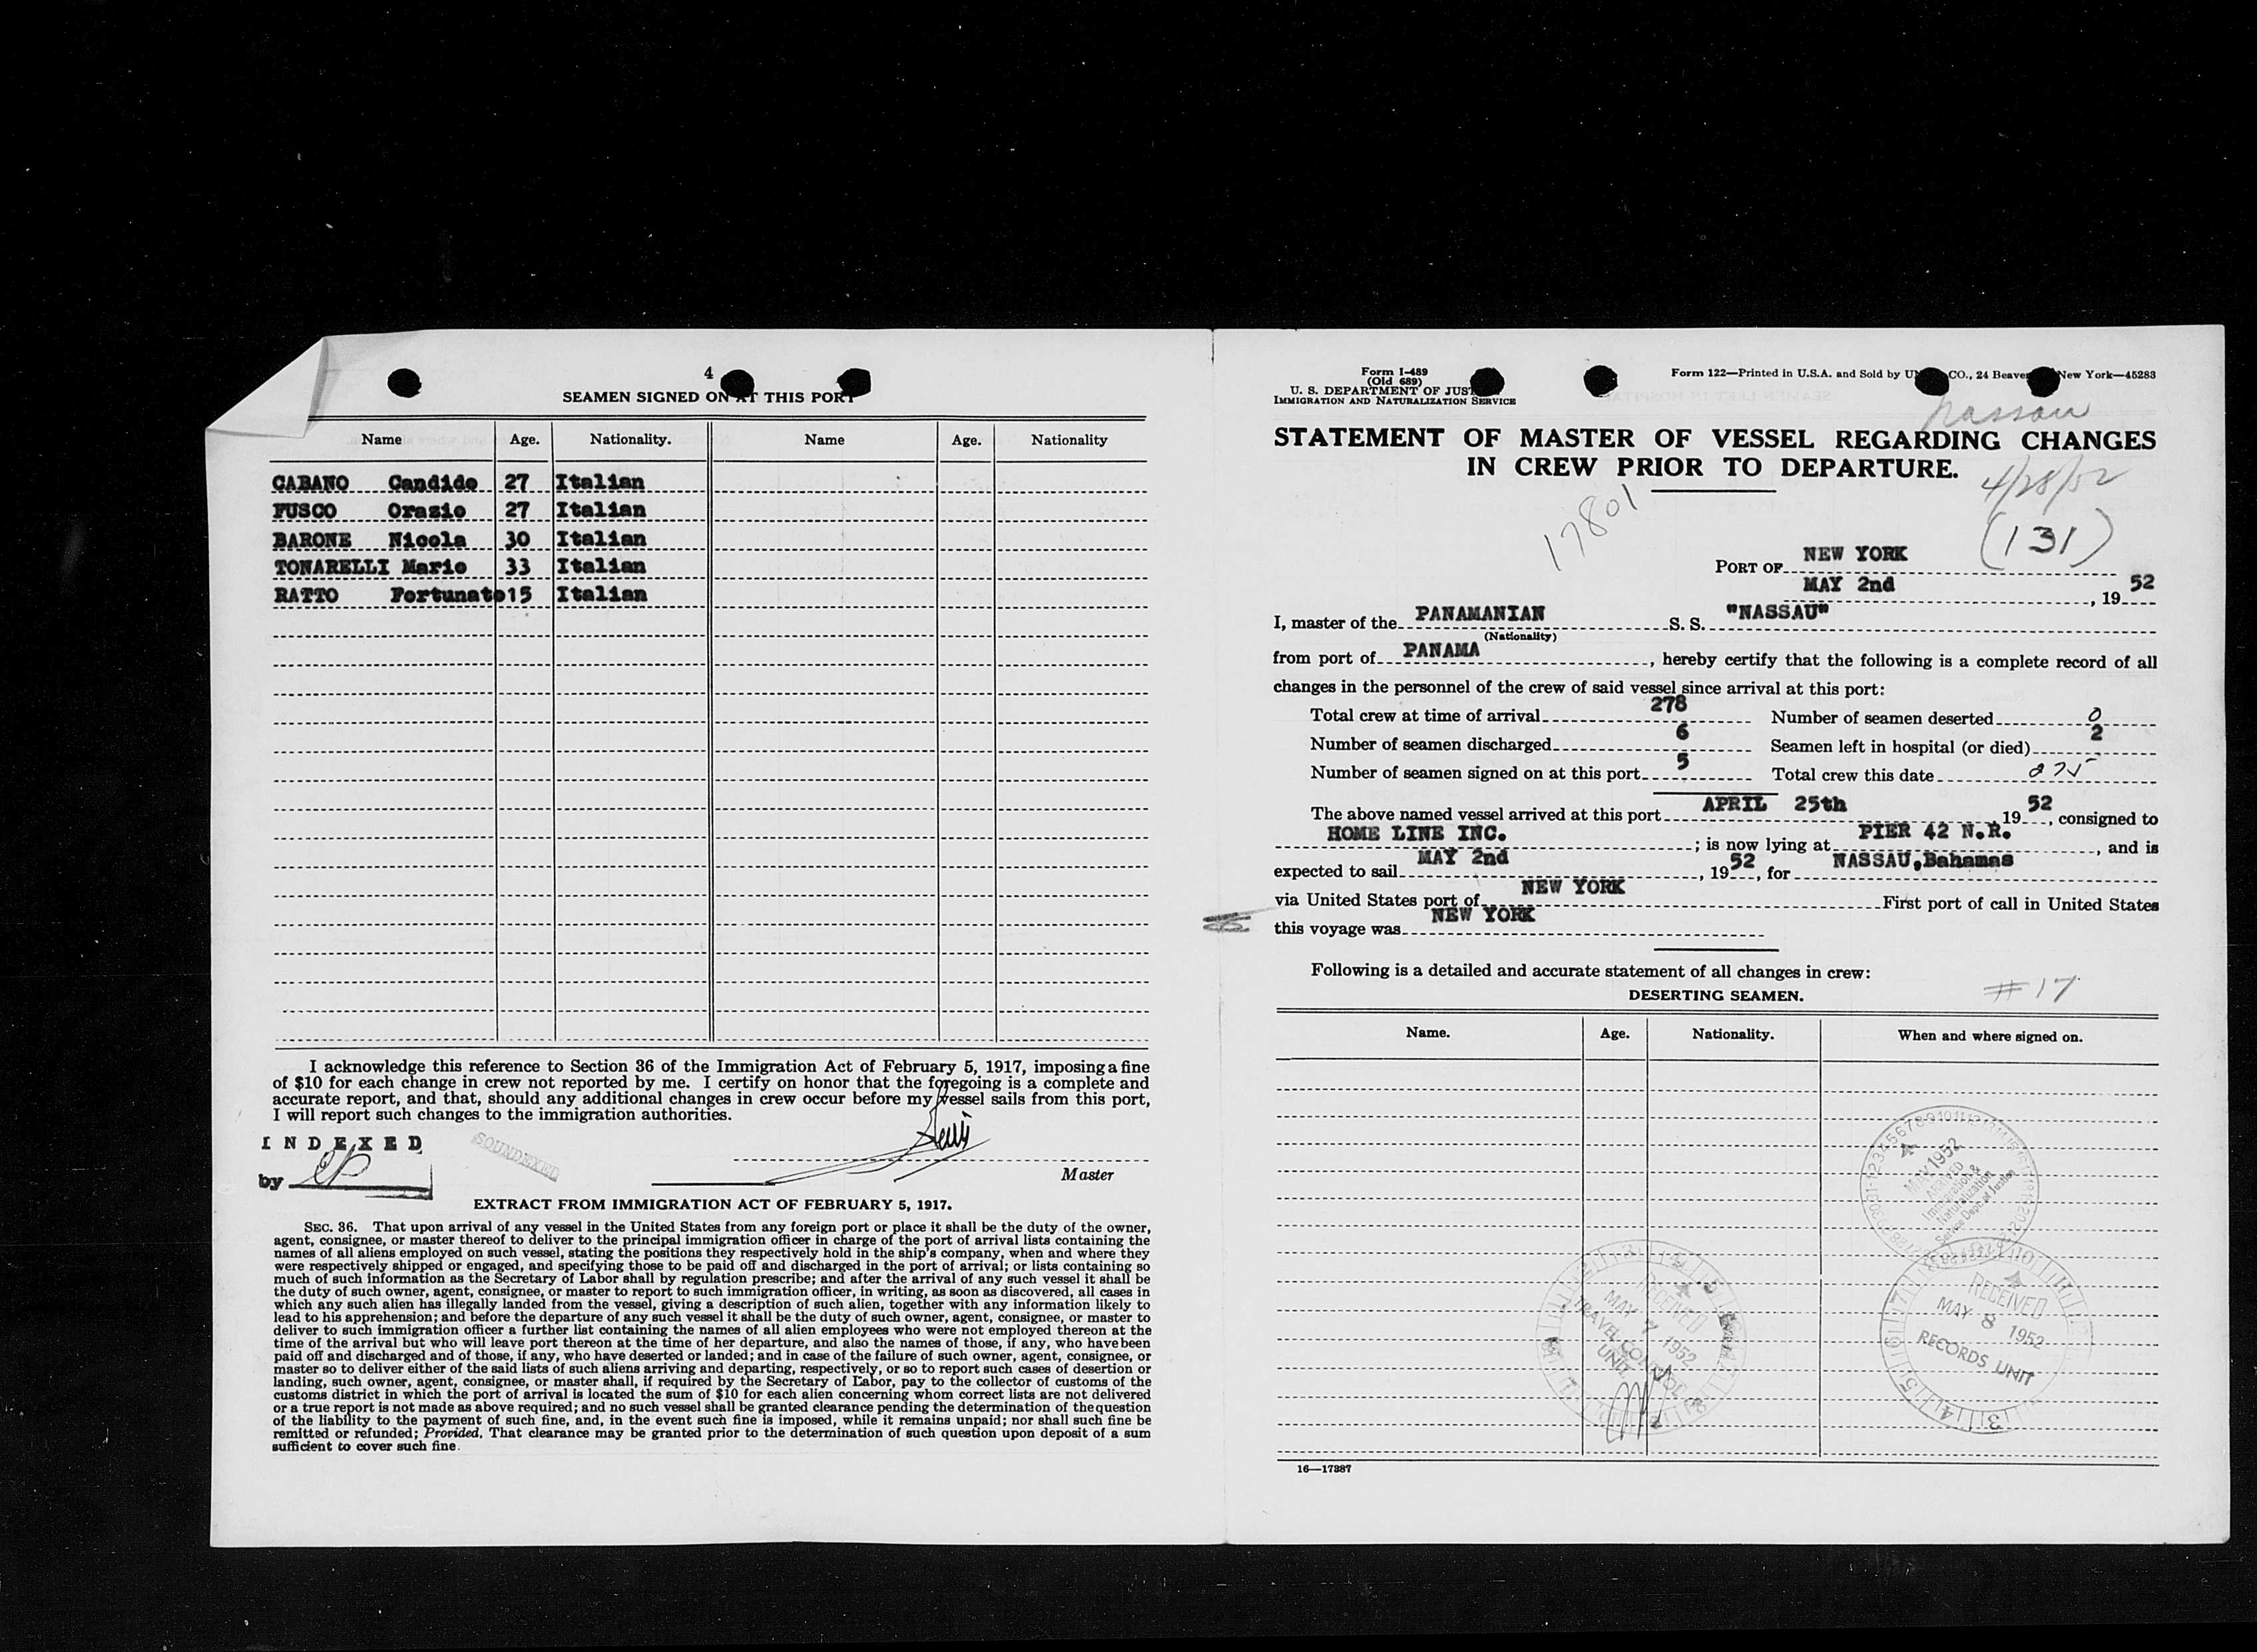 4
SEAMEN SIGNED ON AT THIS PORT
Name Age. Nationality. Name Age. Nationality
CABANO Candido 27 Italian
FUSCO Orazio 27 Italian
BARONE Nicola 30 Italian
TONARELLI Mario 33 Italian
RATTO Fortunato 15 Italian
I acknowledge this reference to Section 36 of the Immigration Act of February 5, 1917, imposing a fine
of $10 for each change in crew not reported by me. I certify on honor that the foregoing is a complete and
accurate report, and that, should any additional changes in crew occur before my vessel sails from this port,
I will report such changes to the immigration authorities.
INDEXED
by
SOUNDEXED
Master
EXTRACT FROM IMMIGRATION ACT OF FEBRUARY 5, 1917.
SEC. 36. That upon arrival of any vessel in the United States from any foreign port or place it shall be the duty of the owner,
agent, consignee, or master thereof to deliver to the principal immigration officer in charge of the port of arrival lists containing the
names of all aliens employed on such vessel, stating the positions they respectively hold in the ship's company, when and where they
were respectively shipped or engaged, and specifying those to be paid off and discharged in the port of arrival; or lists containing so
much of such information as the Secretary of Labor shall by regulation prescribe; and after the arrival of any such vessel it shall be
the duty of such owner, agent, consignee, or master to report to such immigration officer, in writing, as soon as discovered, all cases in
which any such alien has illegally landed from the vessel, giving a description of such alien, together with any information likely to
lead to his apprehension; and before the departure of any such vessel it shall be the duty of such owner, agent, consignee, or master to
deliver to such immigration officer a further list containing the names of all alien employees who were not employed thereon at the
time of the arrival but who will leave port thereon at the time of her departure, and also the names of those, if any, who have been
paid off and discharged and of those, if any, who have deserted or landed; and in case of the failure of such owner, agent, consignee, or
master so to deliver either of the said lists of such aliens arriving and departing, respectively, or so to report such cases of desertion or
landing, such owner, agent, consignee, or master shall, if required by the Secretary of Labor, pay to the collector of customs of the
customs district in which the port of arrival is located the sum of $10 for each alien concerning whom correct lists are not delivered
or a true report is not made as above required; and no such vessel shall be granted clearance pending the determination of the question
of the liability to the payment of such fine, and, in the event such fine is imposed, while it remains unpaid; nor shall such fine be
remitted or refunded; Provided, That clearance may be granted prior to the determination of such question upon deposit of a sum
sufficient to cover such fine.
Form I-489
(Old 689)
U. S. DEPARTMENT OF JUS
IMMIGRATION AND NATURALIZATION SERVICE
Form 122—Printed in U.S.A. and Sold by CO., 24 Beaver New York—45283
Nassau
STATEMENT OF MASTER OF VESSEL REGARDING CHANGES
IN CREW PRIOR TO DEPARTURE.
4/28/52
17801
(131)
PORT OF NEW YORK
MAY 2nd, 1952
I, master of the PANAMANIAN S. S. "NASSAU"
(Nationality)
from port of PANAMA, hereby certify that the following is a complete record of all
changes in the personnel of the crew of said vessel since arrival at this port:
Total crew at time of arrival 278 Number of seamen deserted 0
Number of seamen discharged 6 Seamen left in hospital (or died) 2
Number of seamen signed on at this port 5 Total crew this date 275
The above named vessel arrived at this port APRIL 25th 1952, consigned to
HOME LINE INC.; is now lying at PIER 42 N.R., and is
expected to sail MAY 2nd, 1952, for NASSAU,Bahamas
via United States port of NEW YORK First port of call in United States
this voyage was NEW YORK
Following is a detailed and accurate statement of all changes in crew:
DESERTING SEAMEN.
#17
Name. Age. Nationality. When and where signed on.
MAY 1952
Immigration &
Naturalization
Service Dept. of Justice
RECEIVED
MAY 7 1952
TRAVEL CONTROL
UNIT
RECEIVED
MAY 8 1952
RECORDS UNIT
16—17387